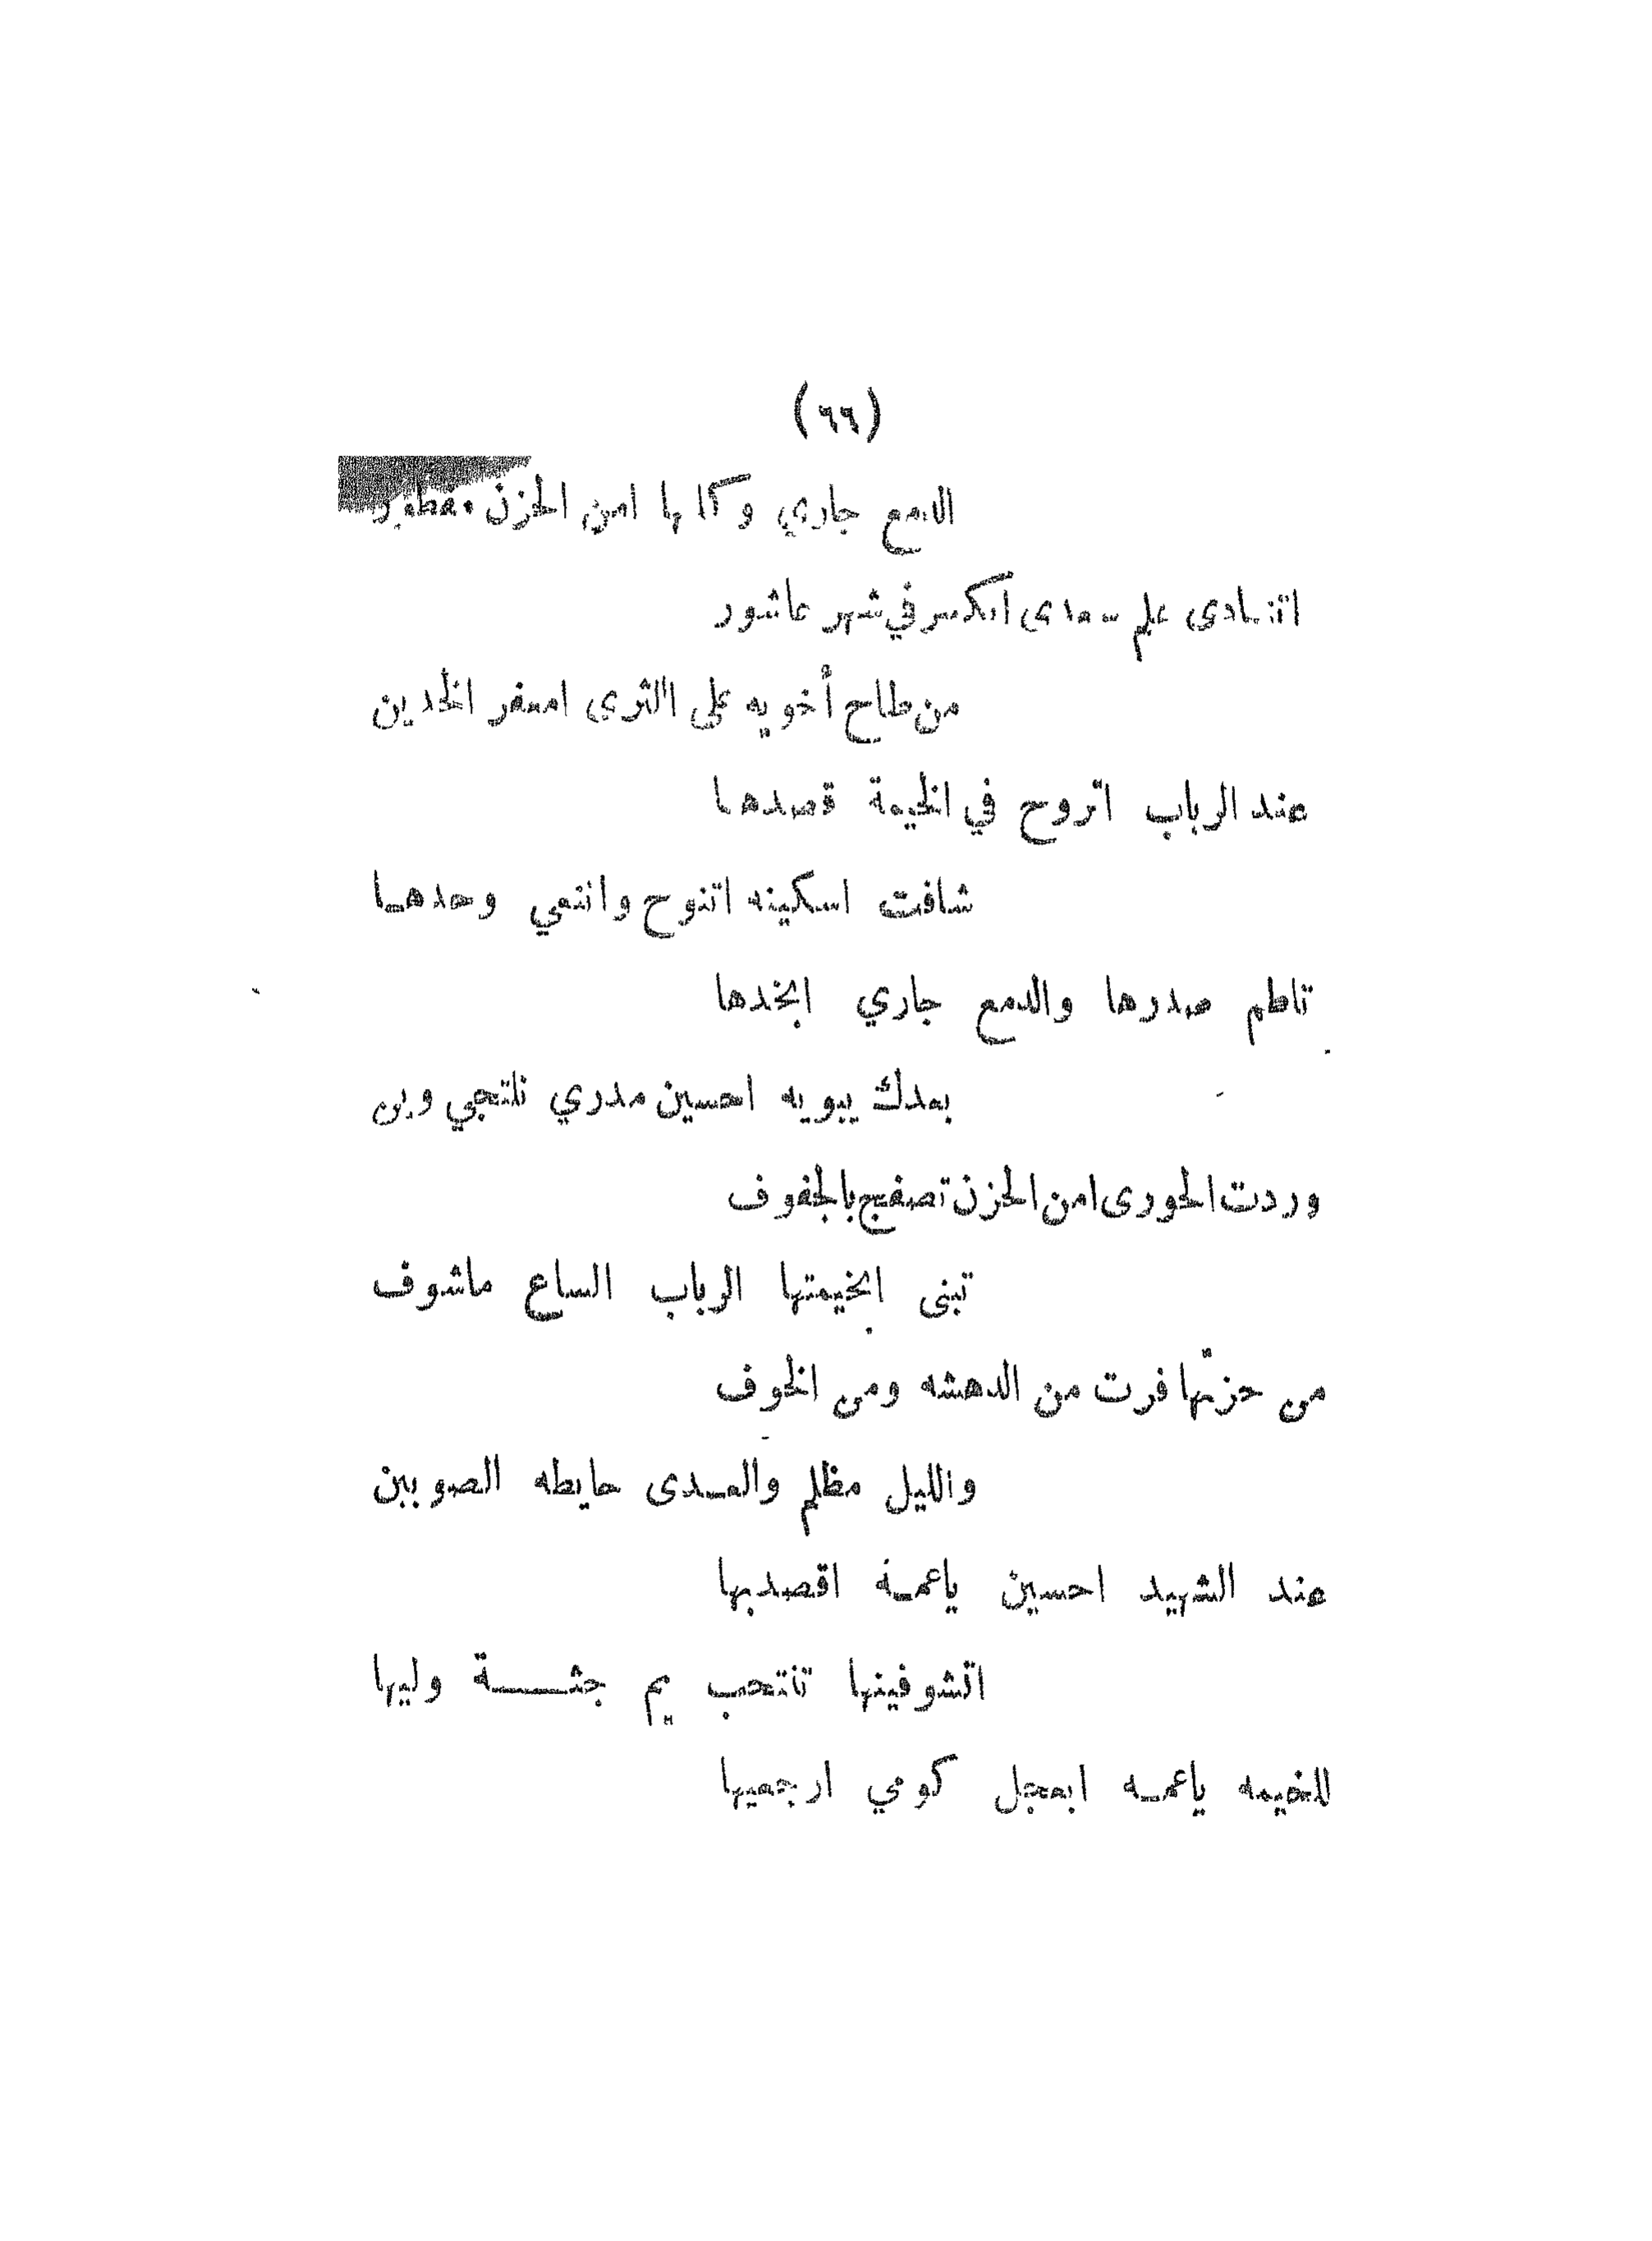 (٦٦)
الدمع جاري وكلها امن الحزن
اتنادى علم سعدى انكسر في شهر عاشور
من طاح أخويه على الثرى امعفر الخدين
عند الرباب اتروح في الخيمة قصدها
شافت اسكينه اتنوح واتنعي وحدها
تلطم صدرها والدمع جاري ابخدها
بعدك يبويه احسين مدري نلتجي وين
وردت الحورى امن الحزن تصفج بالجفوف
تبنى ابخيمتها الرباب الساع ماشوف
من حزنها فرت من الدهشه ومن الخوف
والليل مظلم والعدى حايطه الصوبين
عند الشهيد احسين ياعمة اقصدبها
اتشوفينها تنتحب يم جثة وليها
للخيمه ياعمه ابعجل كومي ارجعيها